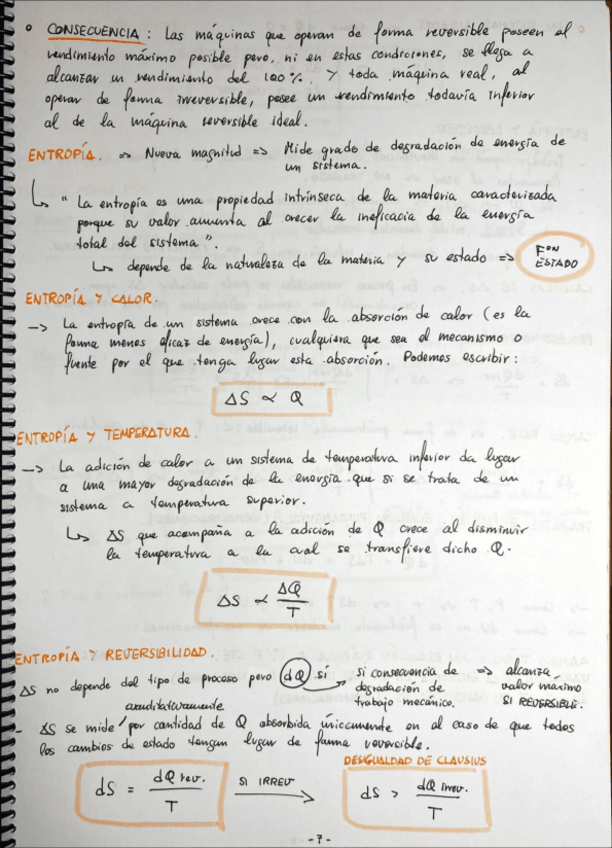 ° CONSECUENCIA : Las máquinas que operan de forma reversible poseen el
rendimiento máximo posible pero, ni en estas condiciones, se llega a
alcanzar un rendimiento del 100%. Y toda máquina real, al
operar de forma irreversible, posee un rendimiento todavía inferior
al de la máquina reversible ideal.
ENTROPÍA. => Nueva magnitud => Mide grado de degradación de energía de
un sistema.
↳ "La entropía es una propiedad intrínseca de la materia caracterizada
porque su valor aumenta al crecer la ineficacia de la energía
total del sistema".
↳ depende de la naturaleza de la materia y su estado => Fon ESTADO
ENTROPÍA Y CALOR.
-> La entropía de un sistema crece con la absorción de calor (es la
forma menos eficaz de energía), cualquiera que sea el mecanismo o
fuente por el que tenga lugar esta absorción. Podemos escribir:
ΔS ∝ Q
ENTROPÍA Y TEMPERATURA.
-> La adición de calor a un sistema de temperatura inferior da lugar
a una mayor degradación de la energía que si se trata de un
sistema a temperatura superior.
↳ ΔS que acompaña a la adición de Q crece al disminuir
la temperatura a la cual se transfiere dicho Q.
ΔS ∝ ΔQ / T
ENTROPÍA Y REVERSIBILIDAD.
ΔS no depende del tipo de proceso pero dQ sí -> si consecuencia de => alcanza
degradación de valor máximo
trabajo mecánico. SI REVERSIBLE.
cuantitativamente
- ΔS se mide / por cantidad de Q absorbida únicamente en el caso de que todos
los cambios de estado tengan lugar de forma reversible.
DESIGUALDAD DE CLAUSIUS
dS = dQ rev. / T SI IRREV -> dS > dQ irrev. / T
-7-